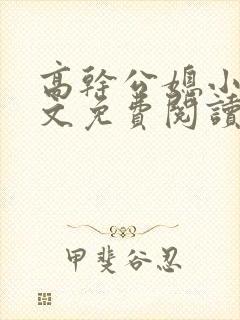 高幹公媳小
文免費閱讀
甲斐谷忍